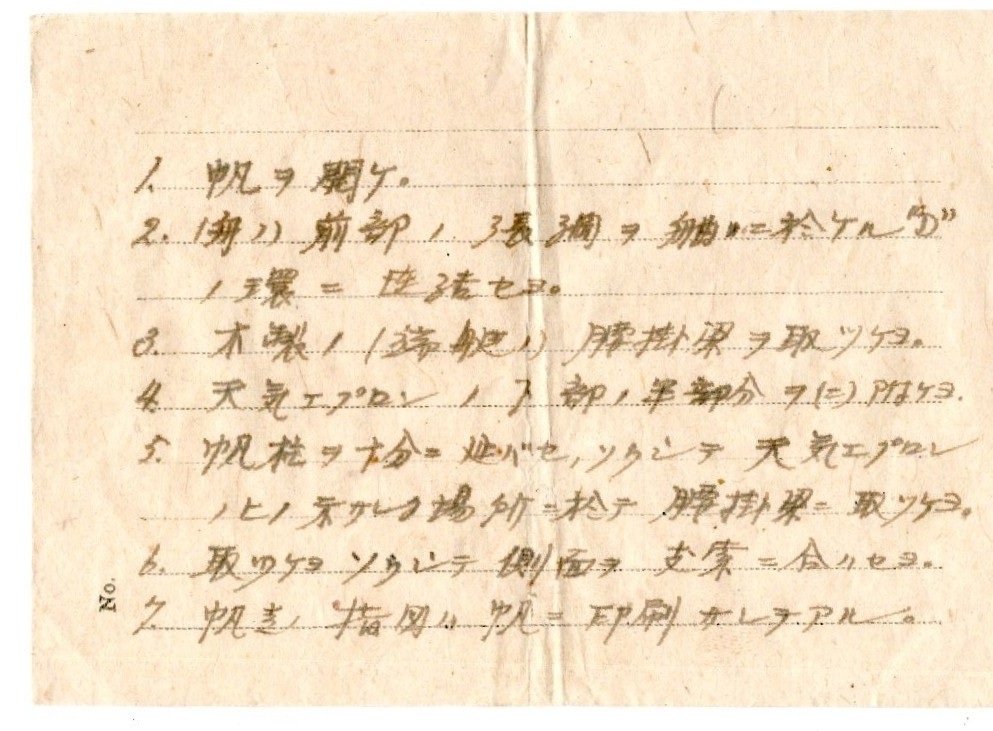 1. 帆ヲ開ケ。
2. (舟ノ) 前部ノ張綱ヲ 舳ニ於ケル"D"
ノ環ニ 連結セヨ。
3. 木製ノ (端艇ノ) 腰掛梁ヲ取ツケヨ。
4. 天気エプロンノ 下部ノ半部分ヲ(ニ)附ケヨ.
5. 帆柱ヲ十分ニ延バセ, ソウシテ 天気エプロン
ノヒノ示サレタ場所ニ於テ 腰掛梁ニ取ツケヨ。
6. 取ツケヨ ソウシテ 側面ヲ 支索ニ合ハセヨ。
7. 帆走ノ指図ハ 帆ニ印刷サレテアル。
No.